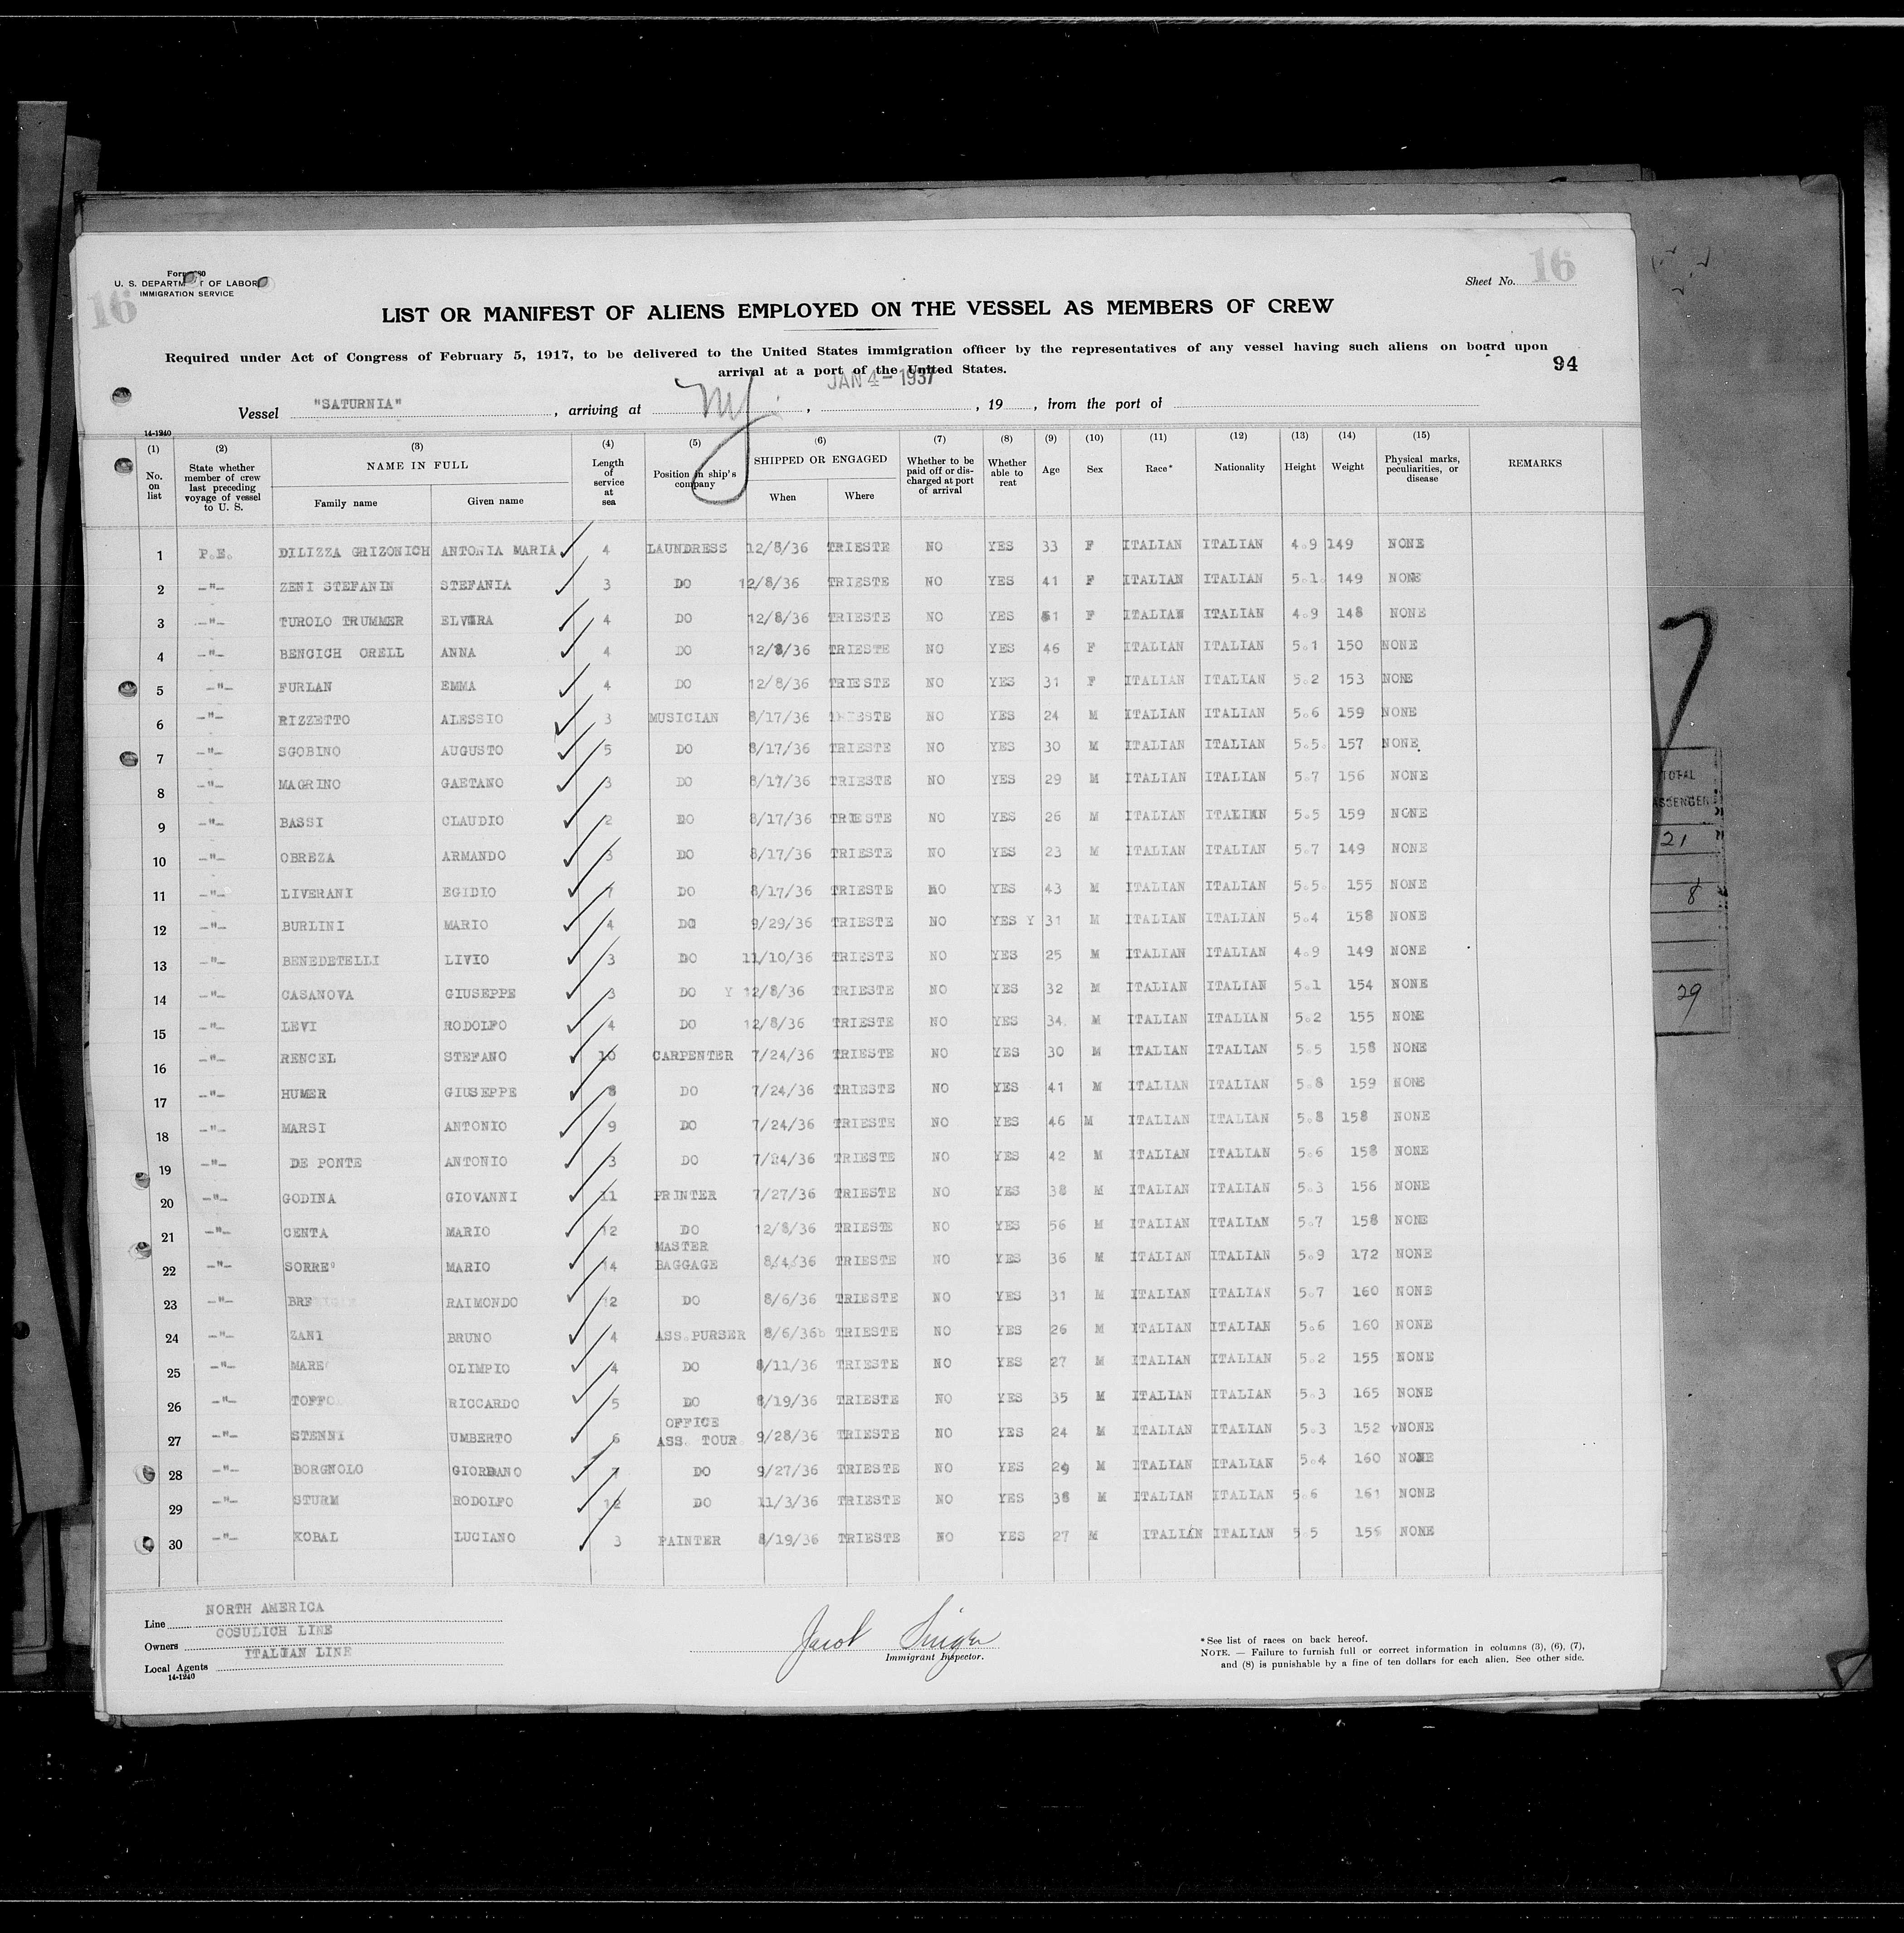 Form 680
U. S. DEPARTMENT OF LABOR
IMMIGRATION SERVICE
16
Sheet No. 16
LIST OR MANIFEST OF ALIENS EMPLOYED ON THE VESSEL AS MEMBERS OF CREW
Required under Act of Congress of February 5, 1917, to be delivered to the United States immigration officer by the representatives of any vessel having such aliens on board upon
arrival at a port of the United States.
94
JAN 4 - 1937
Vessel "SATURNIA", arriving at NY, , 19 , from the port of
14-1240
(1) (2) (3) (4) (5) (6) (7) (8) (9) (10) (11) (12) (13) (14) (15)
No. on list State whether member of crew last preceding voyage of vessel to U. S. NAME IN FULL Family name Given name Length of service at sea Position in ship's company SHIPPED OR ENGAGED When Where Whether to be paid off or discharged at port of arrival Whether able to reat Age Sex Race* Nationality Height Weight Physical marks, peculiarities, or disease REMARKS
1 P.E. DILIZZA GRIZONICH ANTONIA MARIA 4 LAUNDRESS 12/8/36 TRIESTE NO YES 33 F ITALIAN ITALIAN 4.9 149 NONE
2 -"- ZENI STEFANIN STEFANIA 3 DO 12/8/36 TRIESTE NO YES 41 F ITALIAN ITALIAN 5.1. 149 NONE
3 -"- TUROLO TRUMMER ELVIRA 4 DO 12/8/36 TRIESTE NO YES 51 F ITALIAN ITALIAN 4.9 148 NONE
4 -"- BENCICH ORELL ANNA 4 DO 12/8/36 TRIESTE NO YES 46 F ITALIAN ITALIAN 5.1 150 NONE
5 -"- FURLAN EMMA 4 DO 12/8/36 TRIESTE NO YES 31 F ITALIAN ITALIAN 5.2 153 NONE
6 -"- RIZZETTO ALESSIO 3 MUSICIAN 8/17/36 TRIESTE NO YES 24 M ITALIAN ITALIAN 5.6 159 NONE
7 -"- SGOBINO AUGUSTO 5 DO 8/17/36 TRIESTE NO YES 30 M ITALIAN ITALIAN 5.5. 157 NONE.
8 -"- MAGRINO GAETANO 3 DO 8/17/36 TRIESTE NO YES 29 M ITALIAN ITALIAN 5.7 156 NONE
9 -"- BASSI CLAUDIO 2 DO 8/17/36 TRIESTE NO YES 26 M ITALIAN ITALIAN 5.5 159 NONE
10 -"- OBREZA ARMANDO 3 DO 8/17/36 TRIESTE NO YES 23 M ITALIAN ITALIAN 5.7 149 NONE
11 -"- LIVERANI EGIDIO 7 DO 8/17/36 TRIESTE NO YES 43 M ITALIAN ITALIAN 5.5. 155 NONE
12 -"- BURLINI MARIO 4 DO 9/29/36 TRIESTE NO YES Y 31 M ITALIAN ITALIAN 5.4 158 NONE
13 -"- BENEDETELLI LIVIO 3 DO 11/10/36 TRIESTE NO YES 25 M ITALIAN ITALIAN 4.9 149 NONE
14 -"- CASANOVA GIUSEPPE 3 DO Y 12/8/36 TRIESTE NO YES 32 M ITALIAN ITALIAN 5.1 154 NONE
15 -"- LEVI RODOLFO 4 DO 12/8/36 TRIESTE NO YES 34. M ITALIAN ITALIAN 5.2 155 NONE
16 -"- RENCEL STEFANO 10 CARPENTER 7/24/36 TRIESTE NO YES 30 M ITALIAN ITALIAN 5.5 158 NONE
17 -"- HUMER GIUSEPPE 8 DO 7/24/36 TRIESTE NO YES 41 M ITALIAN ITALIAN 5.8 159 NONE
18 -"- MARSI ANTONIO 9 DO 7/24/36 TRIESTE NO YES 46 M ITALIAN ITALIAN 5.8 158 NONE
19 -"- DE PONTE ANTONIO 3 DO 7/24/36 TRIESTE NO YES 42 M ITALIAN ITALIAN 5.6 158 NONE
20 -"- GODINA GIOVANNI 11 PRINTER 7/27/36 TRIESTE NO YES 38 M ITALIAN ITALIAN 5.3 156 NONE
21 -"- CENTA MARIO 12 DO 12/8/36 TRIESTE NO YES 56 M ITALIAN ITALIAN 5.7 158 NONE
22 -"- MARIO 14 MASTER BAGGAGE 8/4/36 TRIESTE NO YES 36 M ITALIAN ITALIAN 5.9 172 NONE
23 -"- RAIMONDO 12 DO 8/6/36 TRIESTE NO YES 31 M ITALIAN ITALIAN 5.7 160 NONE
24 -"- ZANI BRUNO 4 ASS.PURSER 8/6/36 TRIESTE NO YES 26 M ITALIAN ITALIAN 5.6 160 NONE
25 -"- OLIMPIO 4 DO 8/11/36 TRIESTE NO YES 27 M ITALIAN ITALIAN 5.2 155 NONE
26 -"- RICCARDO 5 DO 8/19/36 TRIESTE NO YES 35 M ITALIAN ITALIAN 5.3 165 NONE
27 -"- STENNI UMBERTO 6 OFFICE ASS. TOUR. 9/28/36 TRIESTE NO YES 24 M ITALIAN ITALIAN 5.3 152 NONE
28 -"- BORGNOLO GIORDANO 7 DO 9/27/36 TRIESTE NO YES 29 M ITALIAN ITALIAN 5.4 160 NONE
29 -"- STURM RODOLFO 12 DO 11/3/36 TRIESTE NO YES 38 M ITALIAN ITALIAN 5.6 161 NONE
30 -"- KOBAL LUCIANO 3 PAINTER 8/19/36 TRIESTE NO YES 27 M ITALIAN ITALIAN 5.5 NONE
Line NORTH AMERICA
Owners COSULICH LINE
Local Agents ITALIAN LINE
14-1240
Jacob Singer
Immigrant Inspector.
*See list of races on back hereof.
NOTE. — Failure to furnish full or correct information in columns (3), (6), (7),
and (8) is punishable by a fine of ten dollars for each alien. See other side.
TOTAL
21
8
29